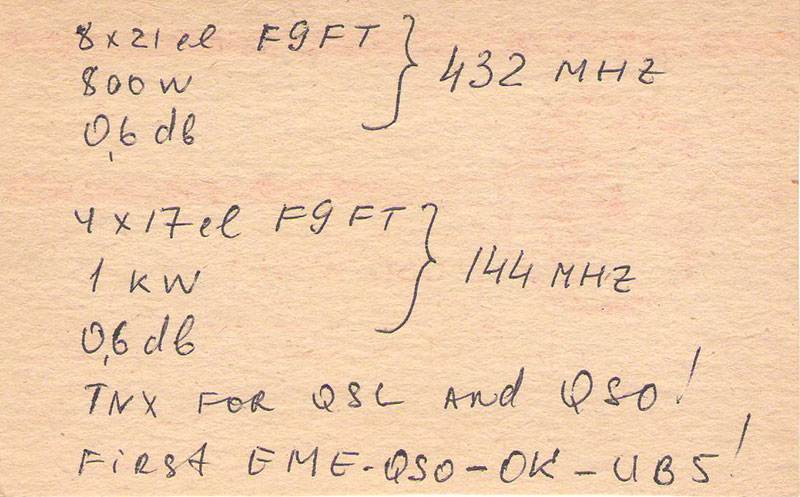 8x21el F9FT } 432 MHZ
800W
0,6 db
4x17el F9FT } 144 MHZ
1 KW
0,6 db
TNX FOR QSL AND QSO!
FIRST EME-QSO-OK-UB5!